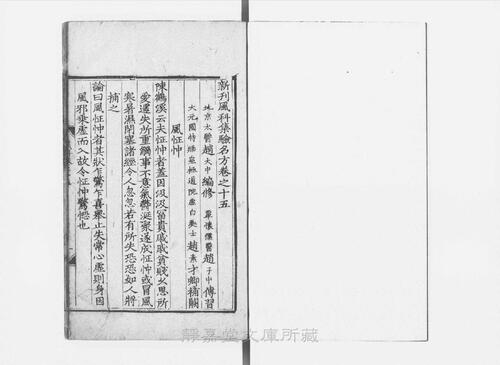 新刊風科集驗名方卷之十五
北京太醫趙大中編修 覃懷儒醫趙子中傳習
大元國特賜嘉興路道院虛白處士趙素才卿補闕
風怔忡
陳鶴溪云夫怔忡者蓋因汲汲富貴戚戚貧賤久思所
愛遽失所重觸事不意氣鬱涎聚遂成怔忡或冒風
寒暑濕閉塞諸經令人忽忽若有所失恐恐如人將
捕之
論曰風怔忡者其狀乍驚乍喜舉止失常心虛則身因
風邪乘虛而入故令怔忡驚悸也
靜嘉堂文庫所藏